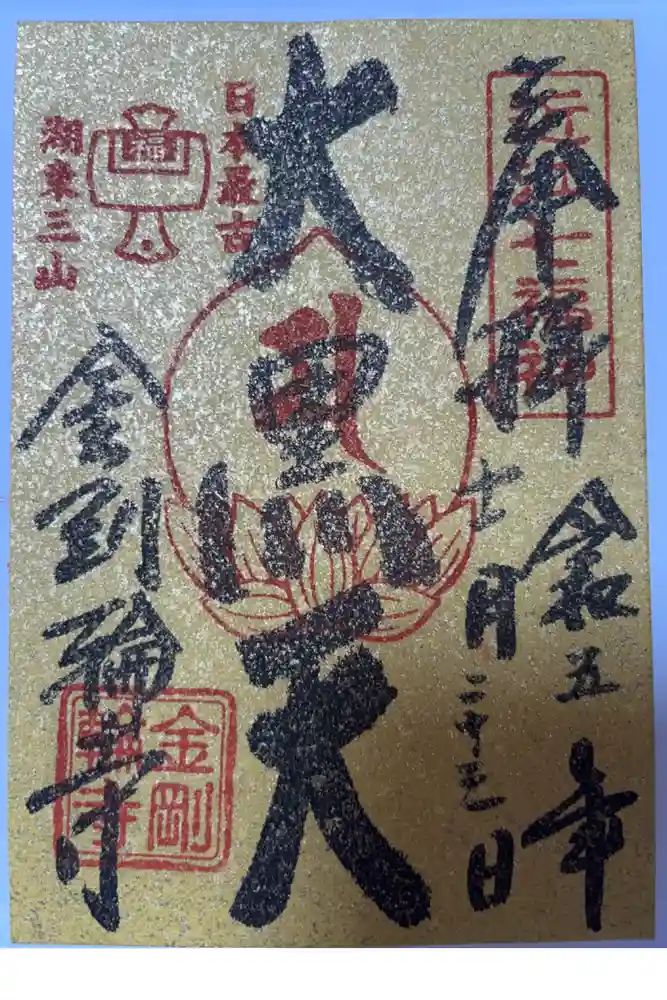 近江七福神
奉拝
令和五年
十一月二十三日
大黒天
日本最古
福
湖東三山
金剛輪寺
金剛
輪寺